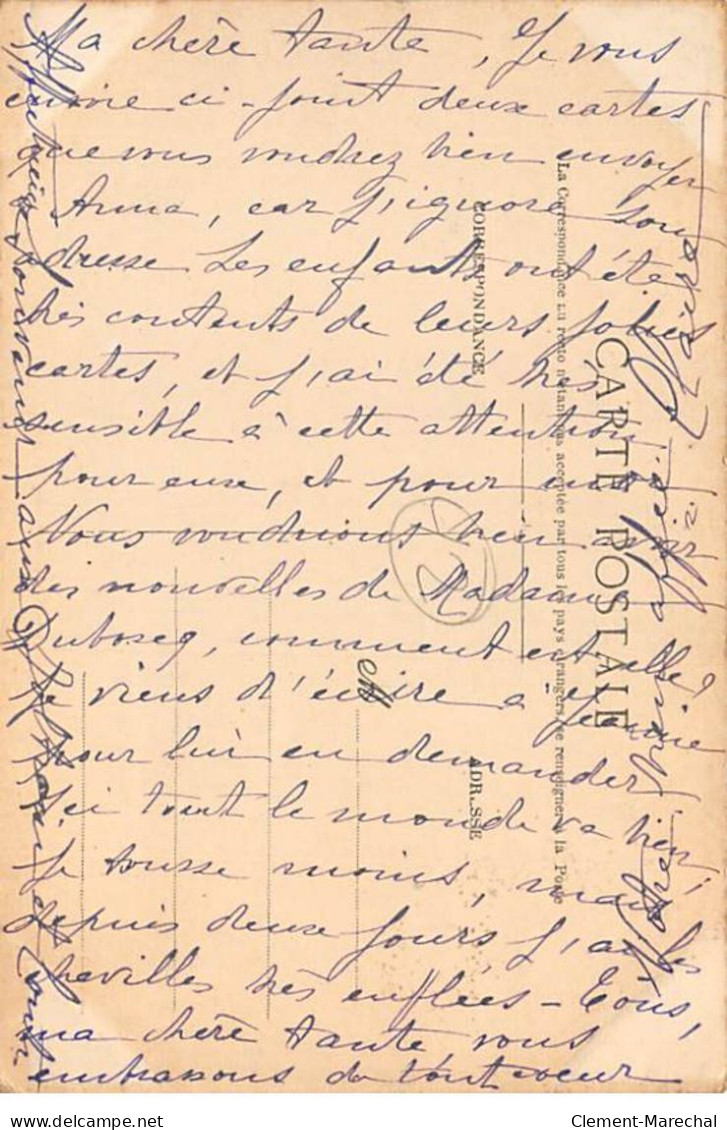 Ma chère tante, Je vous
envoie ci-joint deux cartes
que vous voudrez bien envoyer
Anna, car j'ignore son
adresse Les enfants ont été
très contents de leurs jolies
cartes, et j'ai été très
sensible à cette attention
pour eux, et pour moi
Nous voudrions bien avoir
des nouvelles de Madame
Duboscq, comment est-elle?
Je viens d'écrire à Jeanne
pour lui en demander
Ici tout le monde va bien,
je tousse moins, mais
depuis deux jours j'ai les
chevilles très enflées - Tous,
ma chère tante vous
embrassons de tout coeur
Affectueux souvenir aux
CARTE POSTALE
La Correspondance au recto n'étant pas acceptée par tous les pays étrangers se renseigner à la Poste
CORRESPONDANCE
ADRESSE
Clement-Marechal